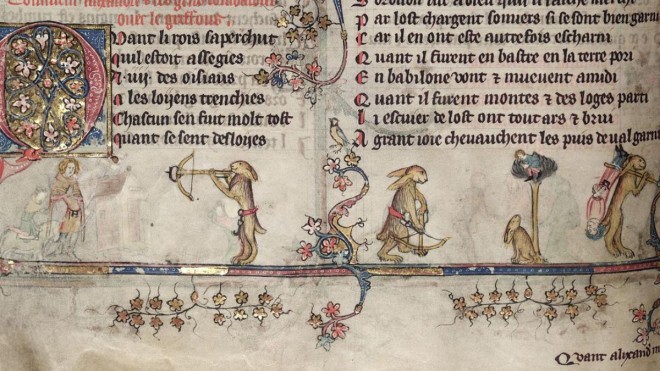 Quant li rois saperchut
quil estoit assegies
A .iiij. des oisiaus
a les loyens trenchies
Chascun sen fuit molt tost
quant se sent desloyes
Par lost chargent somiers si se sont bien garni
Car il en ont este autrefois escharni
Quant il furent en bastre en la terre pori
En babilone vont & muevent amidi
Quant il furent montes & des loges parti
Li escuier de lost ont tout ars & brui
A grant ioie chevauchent les puis de val garni
Quant alixand